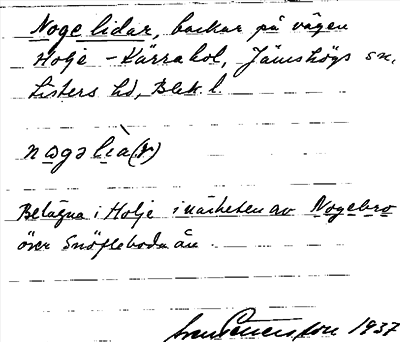 Noge lidar, backar på vägen
Holje - Kärrahol, Jämshögs sn,
Listers hd, Blek. l.
nogə lìa(r)
Belägna i Holje i närheten av Nogebro
över Snöflebodaån
Sven Petersson 1937